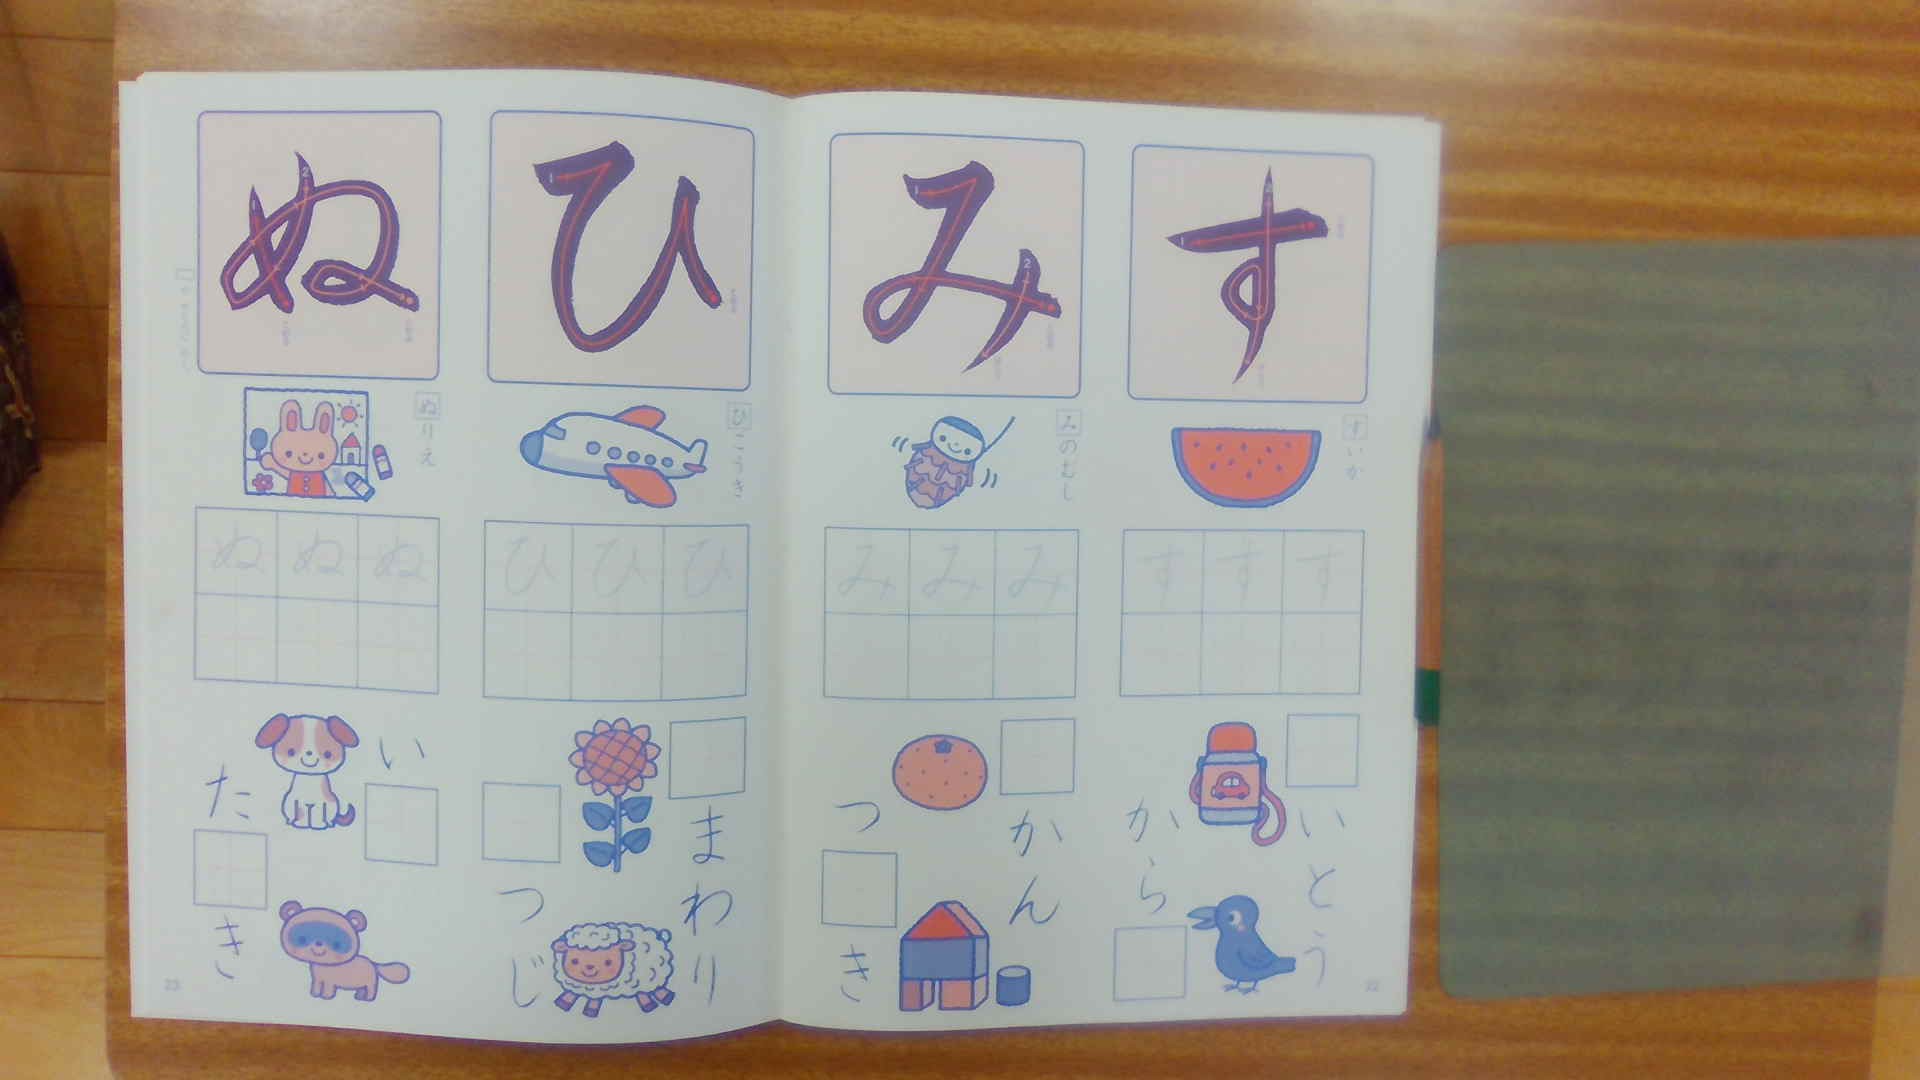 す
すいか
す す す
□いとう
から□
み
みのむし
み み み
□かん
つ□き
22
ひ
ひこうき
ひ ひ ひ
□まわり
□つじ
ぬ
ぬりえ
ぬ ぬ ぬ
い□
た□き
23